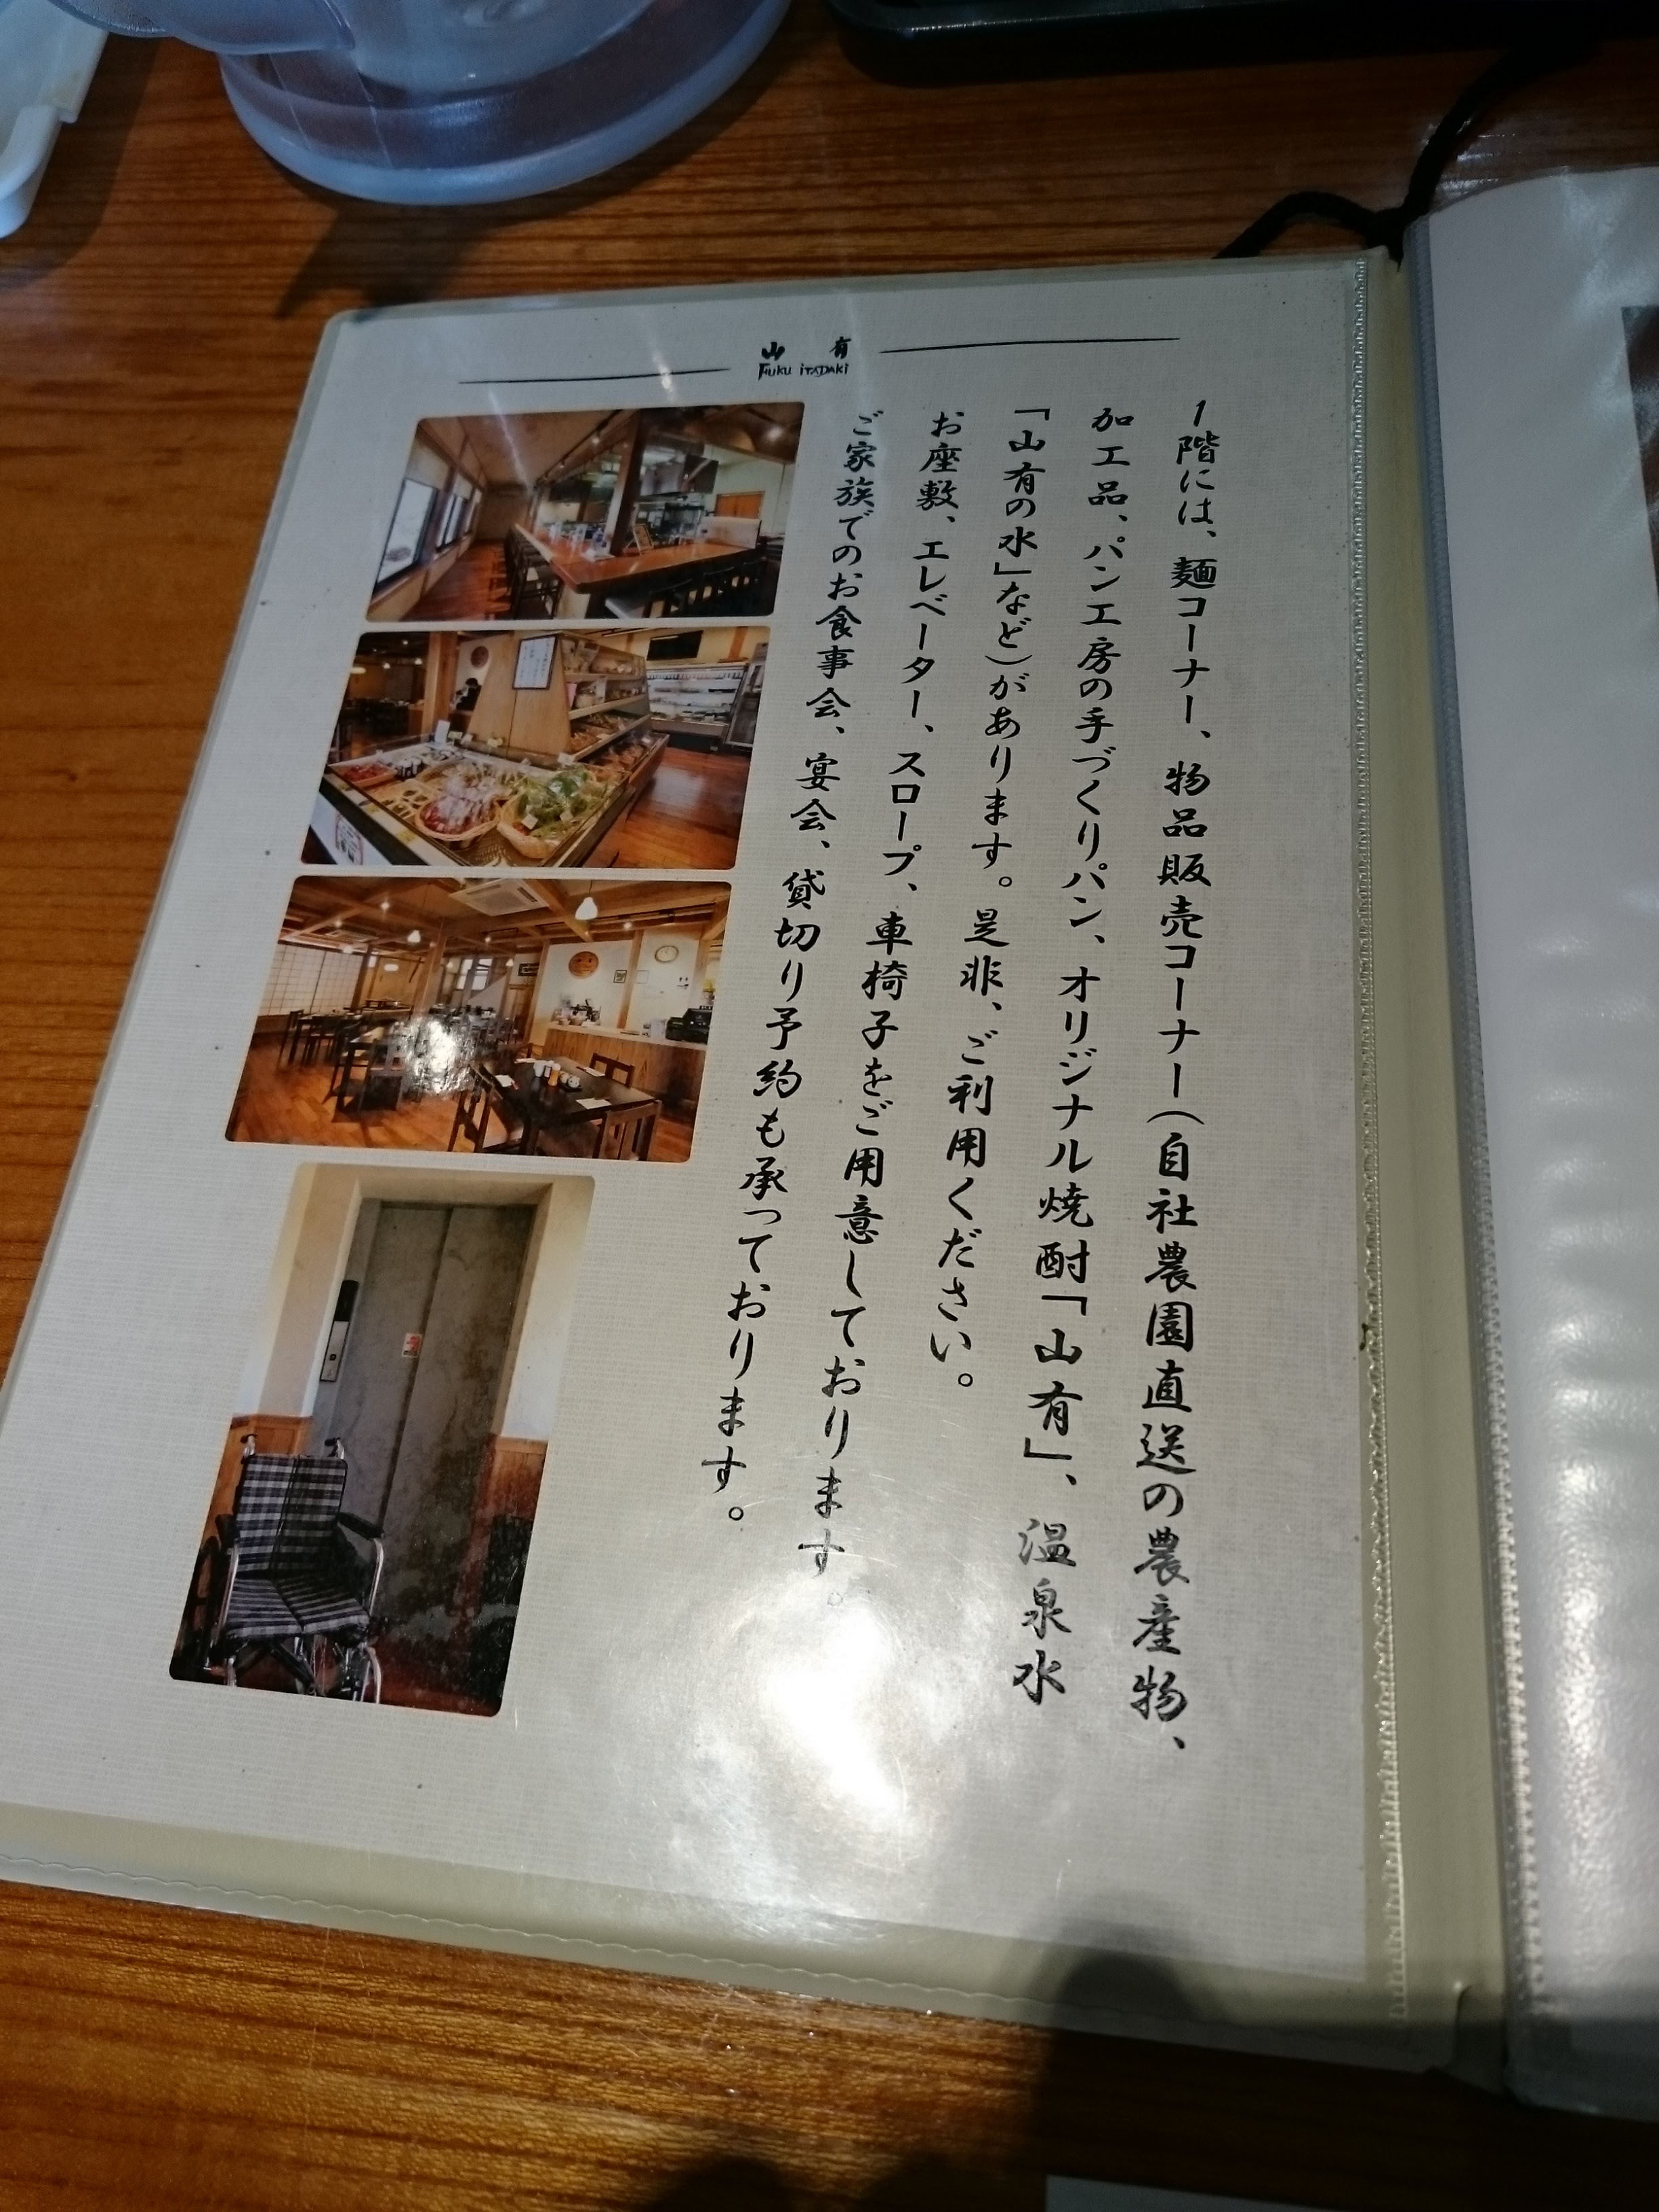 山 有
FUKU iTADAKi
1階には、麺コーナー、物品販売コーナー(自社農園直送の農産物、
加工品、パン工房の手づくりパン、オリジナル焼酎「山有」、温泉水
「山有の水」など)があります。是非、ご利用ください。
お座敷、エレベーター、スロープ、車椅子をご用意しております。
ご家族でのお食事会、宴会、貸切り予約も承っております。